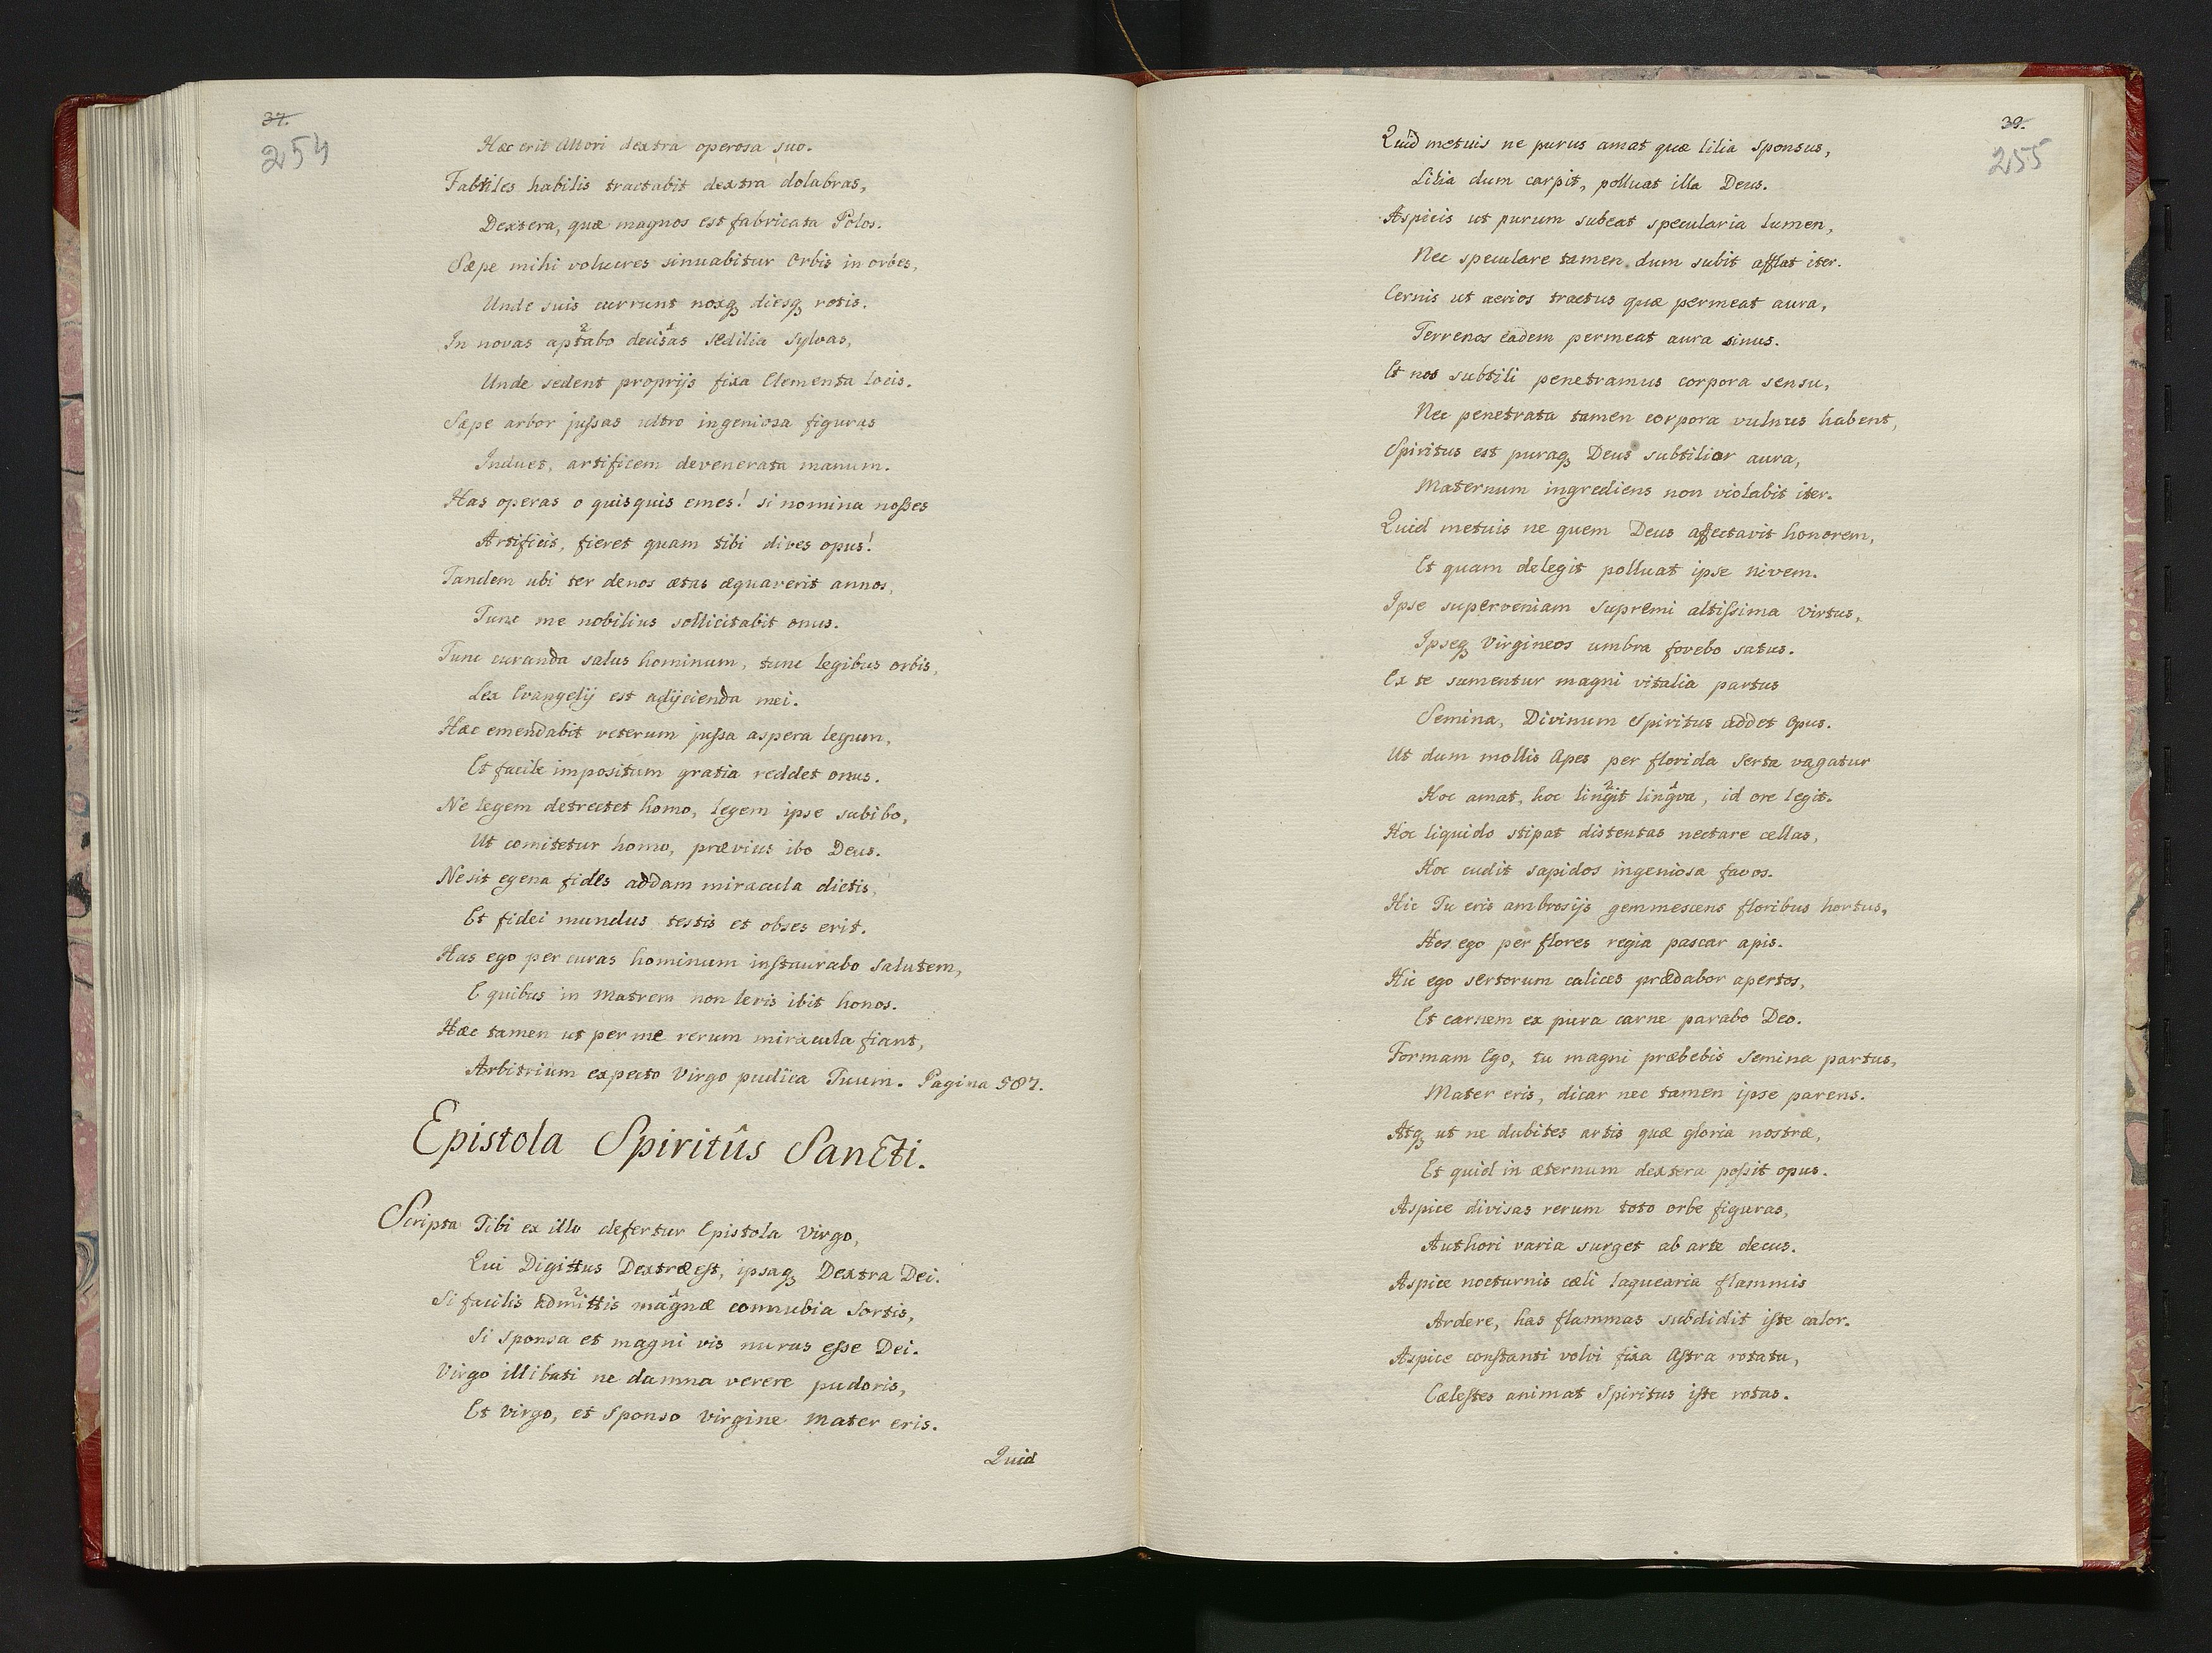 37.
254
Hæc erit Altori dextra operosa suo.
Fabriles habilis tractabit dextra dolabras,
Dextera, quæ magnos est fabricata Polos.
Sæpe mihi volucres sinuabitur Orbis in orbes,
Unde suis currunt noxq₃ diesq₃ rotis.
In novas aptabo decisas sedilia sylvas,
Unde sedent proprijs fixa Elementa locis.
Sæpe arbor jussas ultro ingeniosa figuras
Induet, artificem devenerata manum.
Has operas o quisquis emes! si nomina nosses
Artificis, fieret quam tibi dives opus!
Tandem ubi ter denos ætas æquaverit annos,
Tunc me nobilius sollicitabit onus.
Tunc curanda salus hominum, tunc legibus orbis,
Lex Evangelij est adijcienda mei.
Hæc emendabit veterum jussa aspera legum,
Et facile impositum gratia reddet onus.
Ne legem detrectet homo, legem ipse subibo,
Ut comitetur homo, prævius ibo Deus.
Ne sit egena fides addam miracula dictis,
Et fidei mundus testis et obses erit.
Has ego per curas hominum instaurabo salutem,
E quibus in Matrem non levis ibit honos.
Hæc tamen ut per me rerum miracula fiant,
Arbitrium expecto Virgo pudica Tuum. Pagina 587.
Epistola Spiritûs Sancti.
Scripta Tibi ex illo defertur Epistola Virgo,
Qui Digittus Dextræ est, ipsaq₃ Dextra Dei.
Si facilis admittis magnæ connubia sortis,
Si Sponsa et magni vis nurus esse Dei.
Virgo illibati ne damna verere pudoris,
Et Virgo, et Sponso Virgine Mater eris.
Quid
39.
255
Quid metuis ne purus amat quæ lilia Sponsus,
Lilia dum carpit, polluat illa Deus.
Aspicis ut purum subeat specularia lumen,
Nec speculare tamen dum subit afflat iter.
Cernis ut aerios tractus quæ permeat aura,
Terrenos eadem permeat aura sinus.
Et nos subtili penetramus corpora sensu,
Nec penetrata tamen corpora vulnus habent,
Spiritus est puraq₃ Deus subtilior aura,
Maternum ingrediens non violabit iter.
Quid metuis ne quem Deus affectavit honorem,
Et quam delegit polluat ipse nivem.
Ipse superveniam Supremi altissima Virtus,
Ipseq₃ Virgineos umbra fovebo satus.
Ex te sumentur magni vitalia partus
Semina, Divinum Spiritus addet Opus.
Ut dum mollis Apes per florida Serta vagatur
Hoc amat, hoc lingit lingva, id ore legit.
Hoc liquido stipat distentas nectare cellas,
Hoc cudit sapidos ingeniosa favos.
Hic Tu eris ambrosijs gemmescens floribus hortus,
Hos ego per flores regia pascar apis.
Hic ego sertorum calices prædabor apertos,
Et carnem ex pura carne parabo Deo.
Formam Ego, tu magni præbebis semina partus,
Mater eris, dicar nec tamen ipse parens.
Atq₃ ut ne dubites artis quæ gloria nostræ,
Et quid in æternum dextera possit opus.
Aspice divisas rerum toto orbe figuras,
Authori varia surget ab arte decus.
Aspice nocturnis cæli laquearia flammis
Ardere, has flammas subdidit iste calor.
Aspice constanti volvi fixa Astra rotatu,
Cælestes animat Spiritus iste rotas.